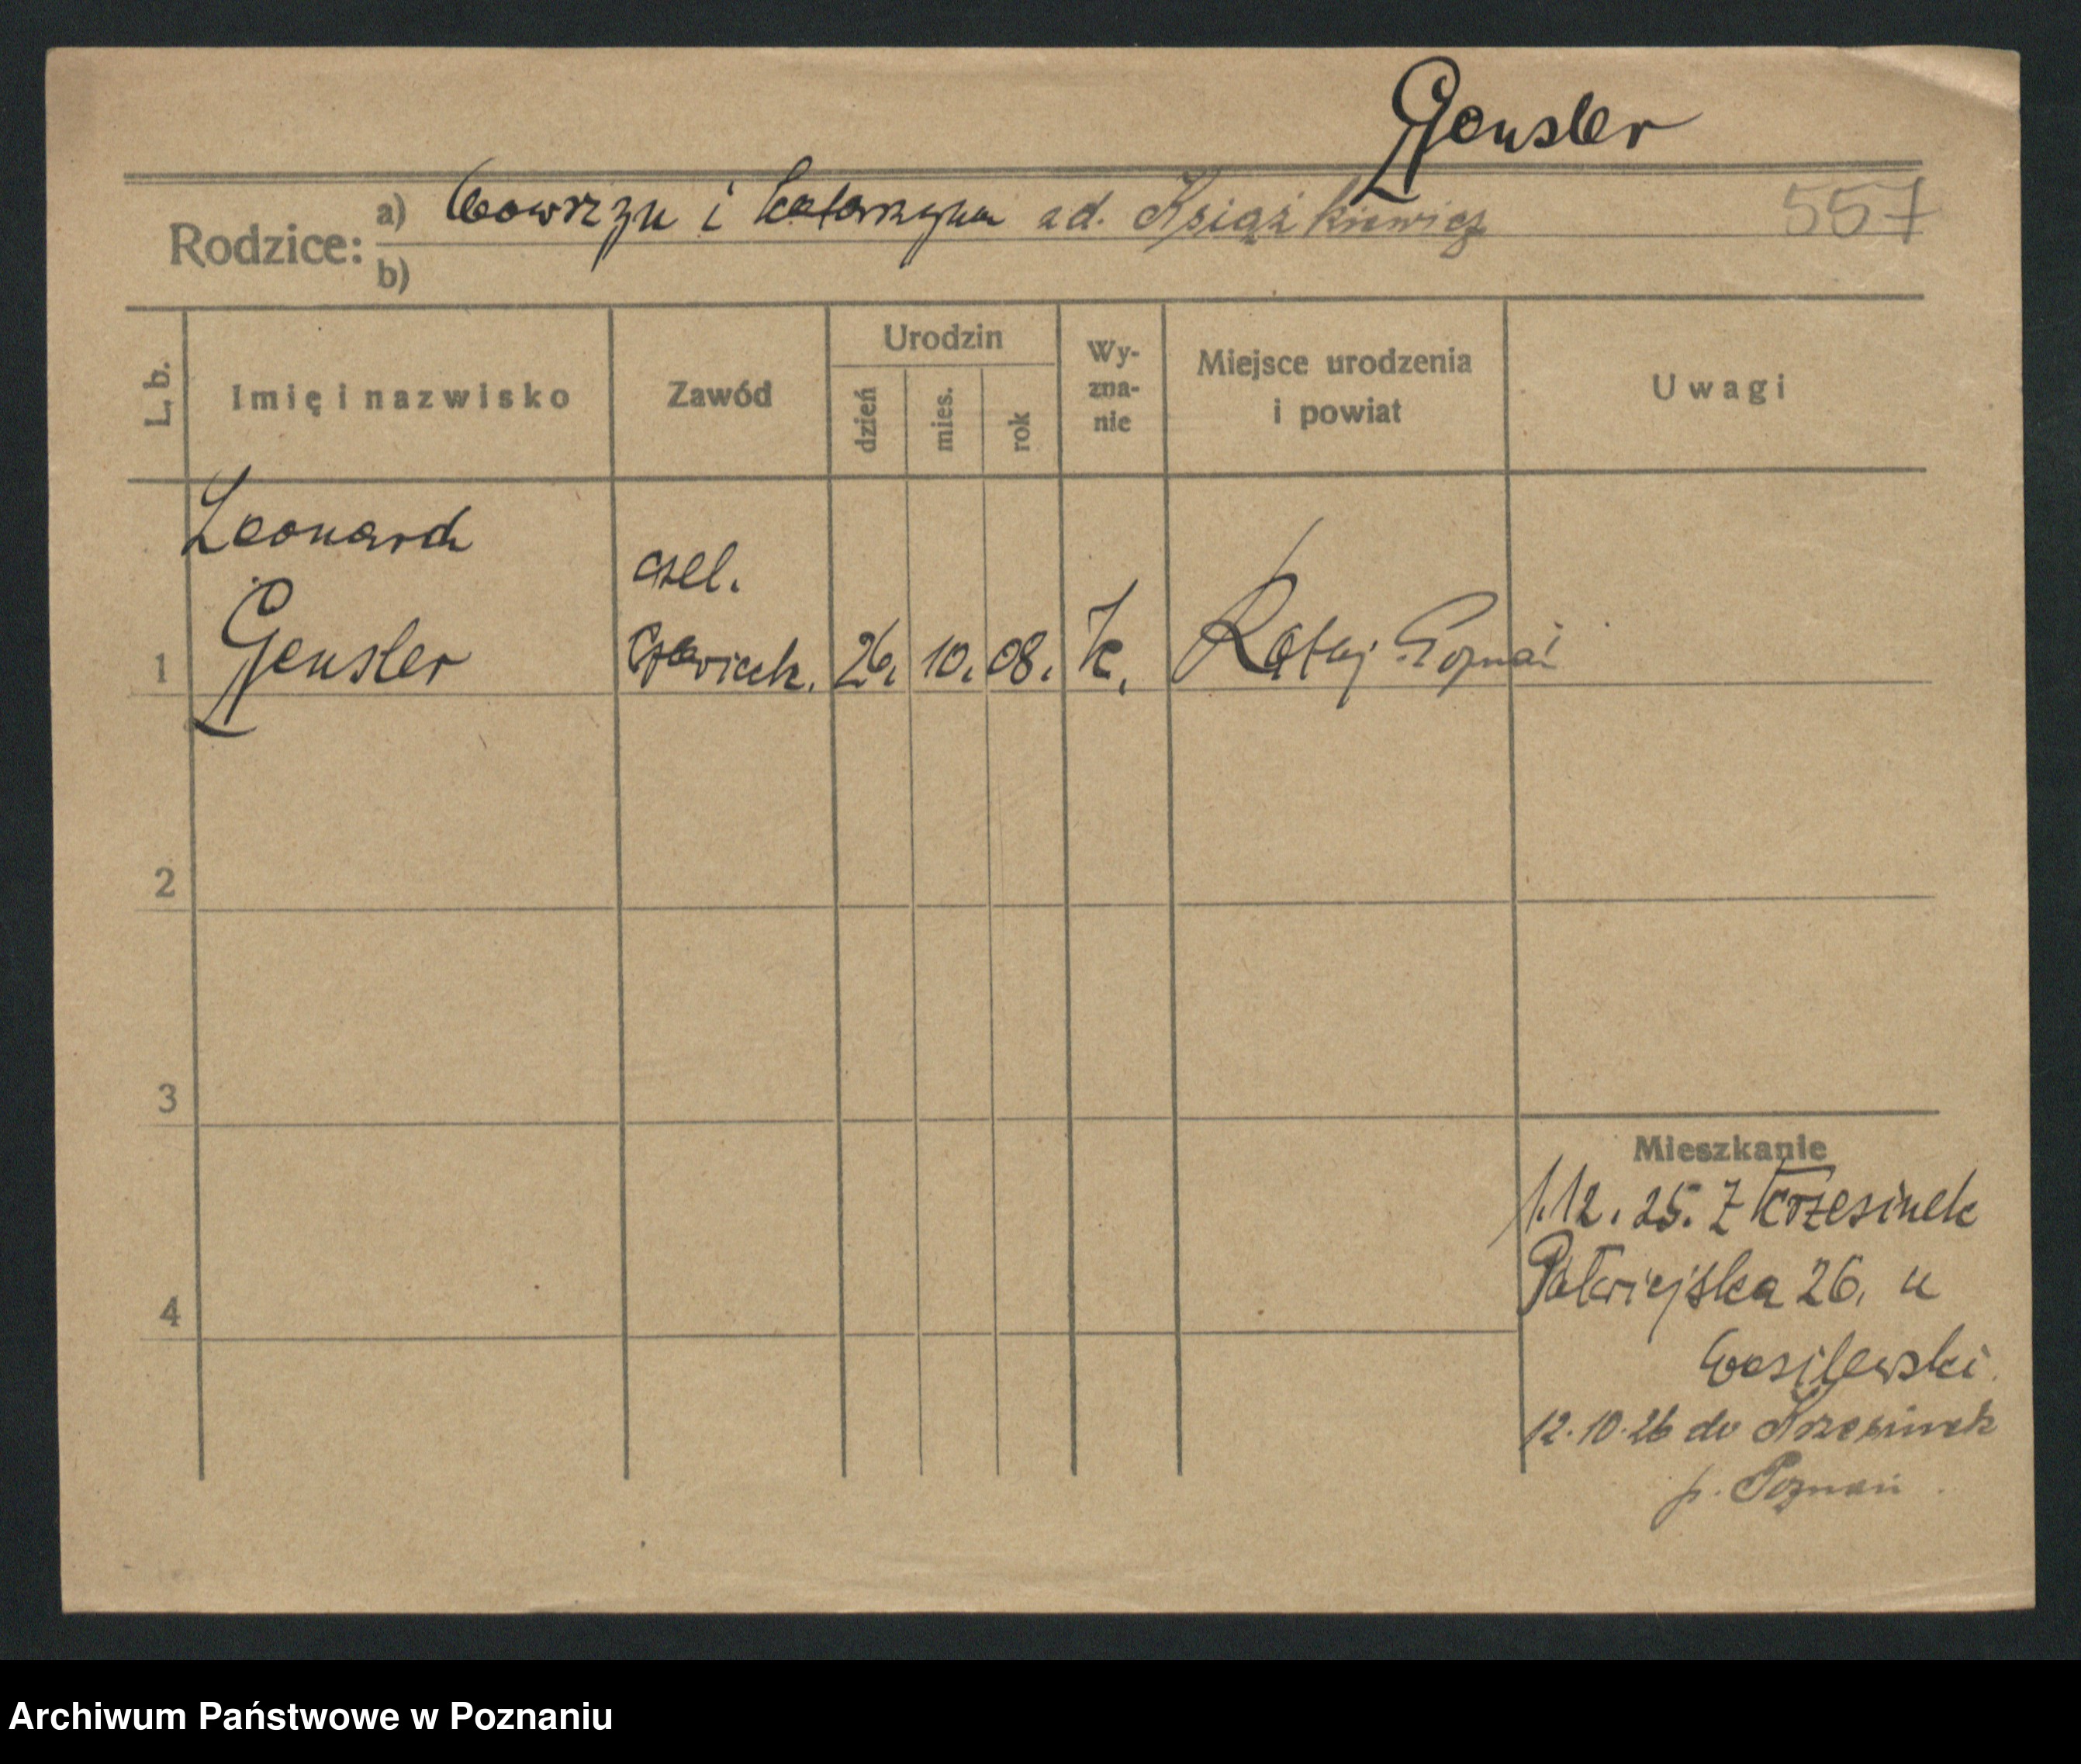 Gensler
Rodzice: a) Wawrzyn i Katarzyna zd. Książkiewicz 557
b)
L. b. Imię i nazwisko Zawód Urodzin dzień mies. rok Wy-zna-nie Miejsce urodzenia i powiat Uwagi
Leonard
czel.
1 Gensler 26. 10. 08. k. Rataj Poznań
2
3
Mieszkanie
1.12.25. Z Krzesinek
Półwiejska 26. u
4
Wasilewski
12.10.26 do Krzesinek
p. Poznań
Archiwum Państwowe w Poznaniu